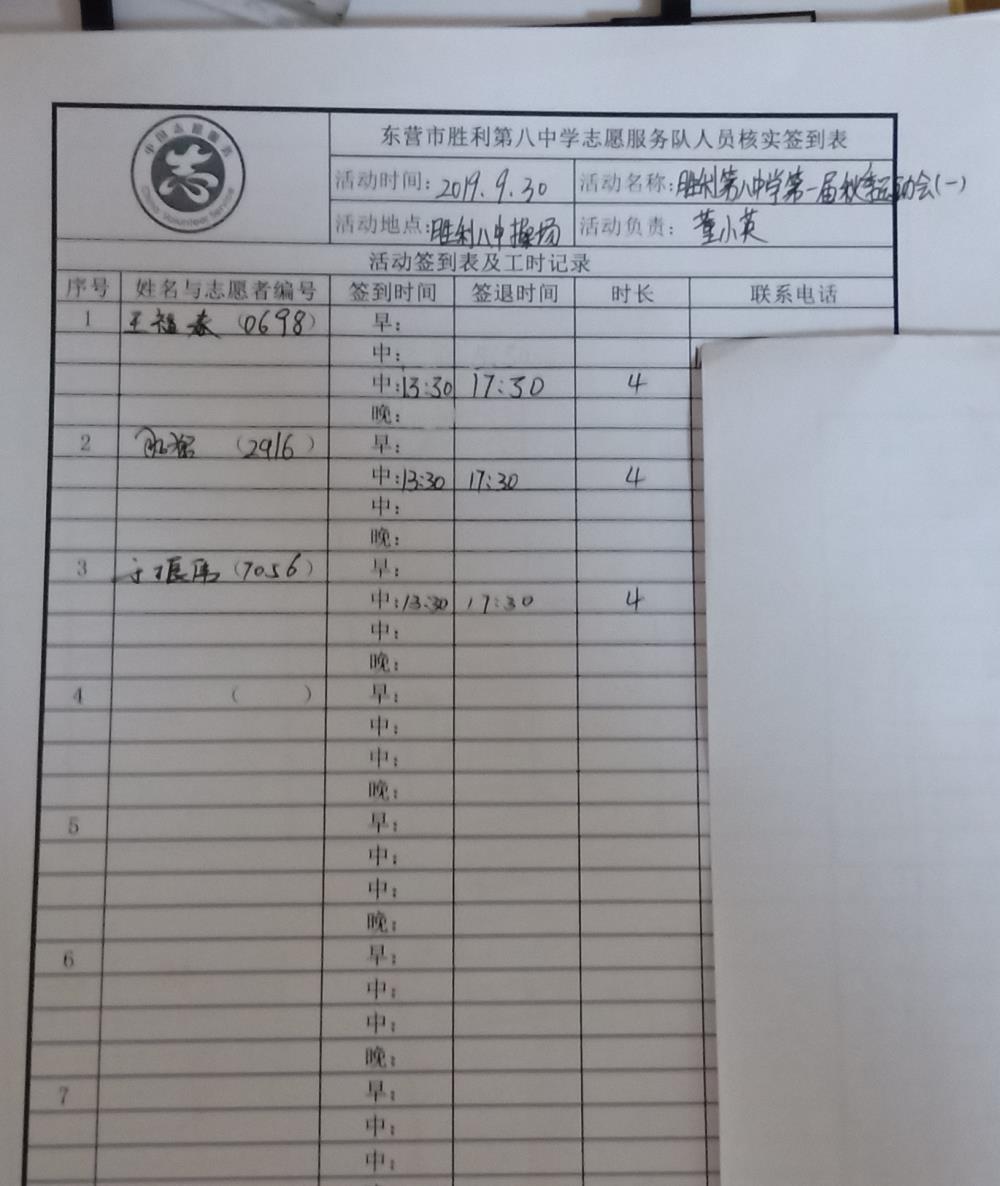 中国志愿服务
China Volunteer Service
东营市胜利第八中学志愿服务队人员核实签到表
活动时间: 2019.9.30 活动名称: 胜利第八中学第一届秋季运动会(一)
活动地点: 胜利八中操场 活动负责: 董小英
活动签到表及工时记录
序号 姓名与志愿者编号 签到时间 签退时间 时长 联系电话
1 王 春 (0698) 早:
中:
中: 13:30 17:30 4
晚:
2 (2916) 早:
中: 13:30 17:30 4
中:
晚:
3 于振伟 (7056) 早:
中: 13:30 17:30 4
中:
晚:
4 ( ) 早:
中:
中:
晚:
5 早:
中:
中:
晚:
6 早:
中:
中:
晚:
7 早:
中:
中: